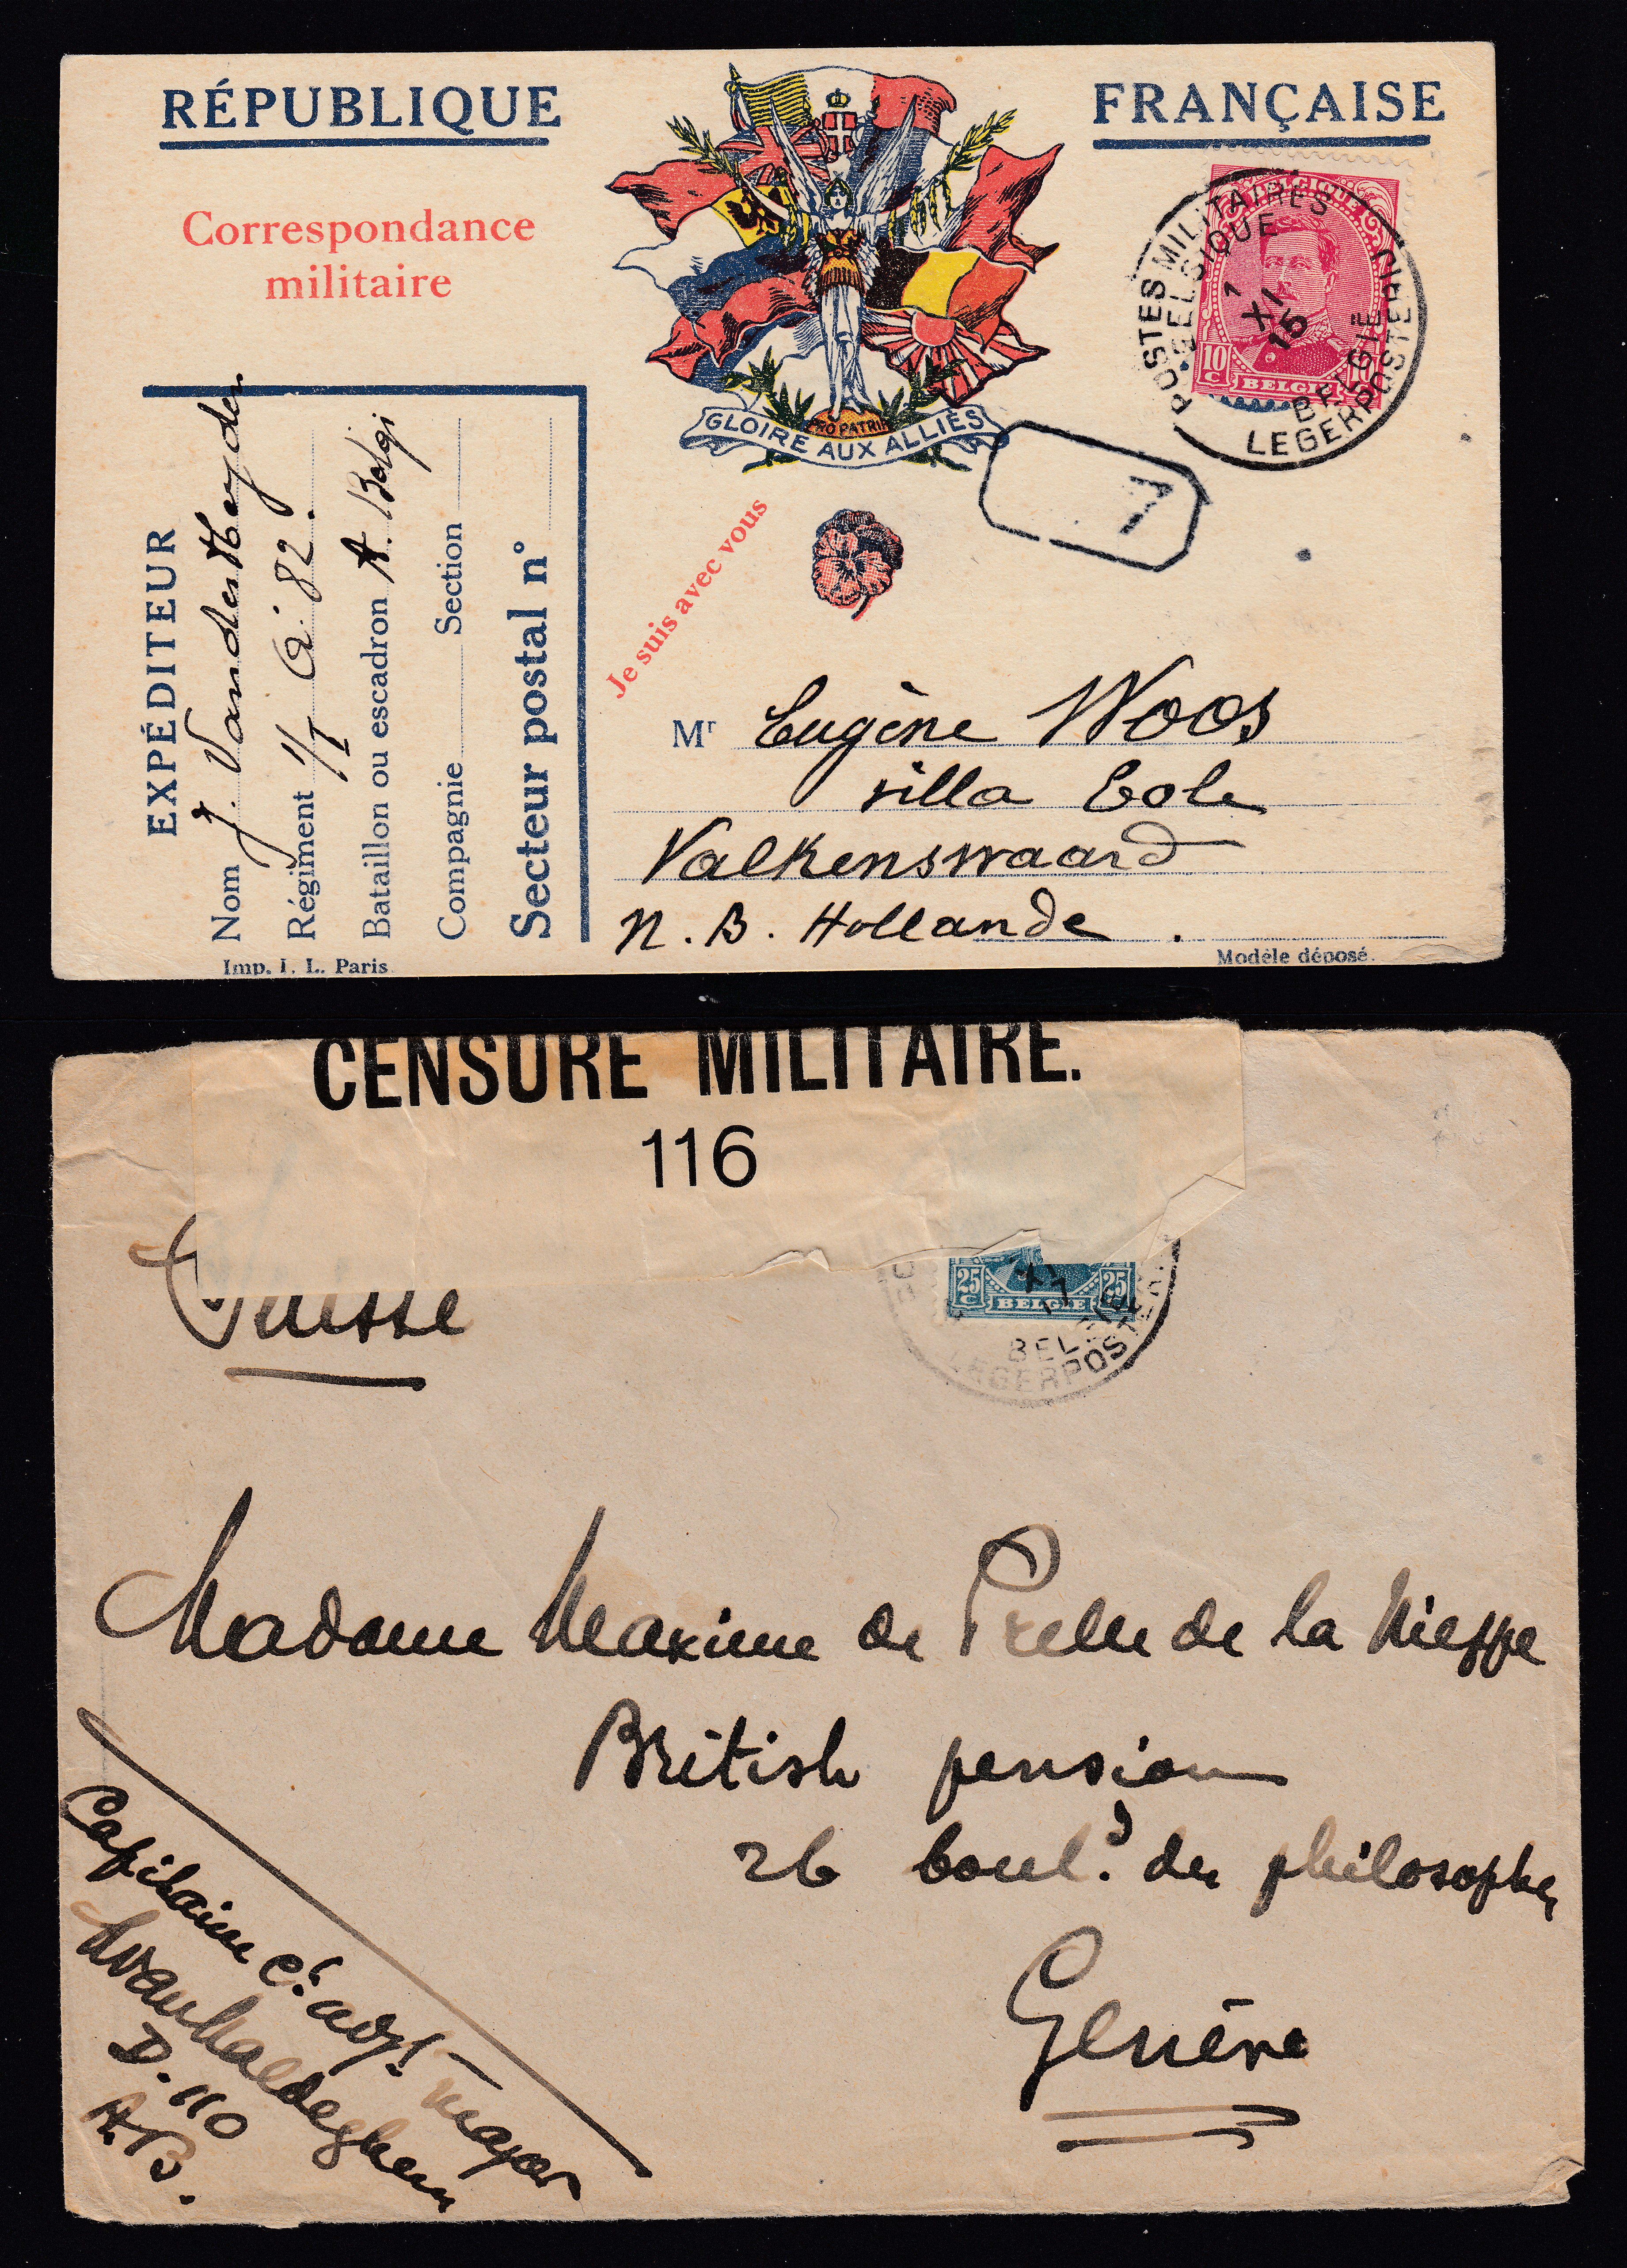 RÉPUBLIQUE FRANÇAISE
Correspondance
militaire
GLOIRE AUX ALLIÉS
PRO PATRIA
Je suis avec vous
BELGIQUE
10 C 10
BELGIË
POSTES MILITAIRES
BELGIQUE
1
XI
15
BELGIE
LEGERPOSTERIJ
7
EXPÉDITEUR
Nom J. VanderHeyden
Régiment 1/I 82.
Bataillon ou escadron A. Belge
Compagnie Section
Secteur postal n°
Imp. I. L. Paris
Mr Eugène Woos
villa Eole
Valkenswaard
N. B. Hollande.
Modèle déposé.
CENSURE MILITAIRE.
116
Suisse
25 C 25 C
BELGIË
XI
17
LEGERPOSTERIJ
Madame Maxime de Prelle de la Nieppe
British pension
26 boul.d des philosophes
Genève
Capitaine Ct. adjt. major
D. 110
A.B.